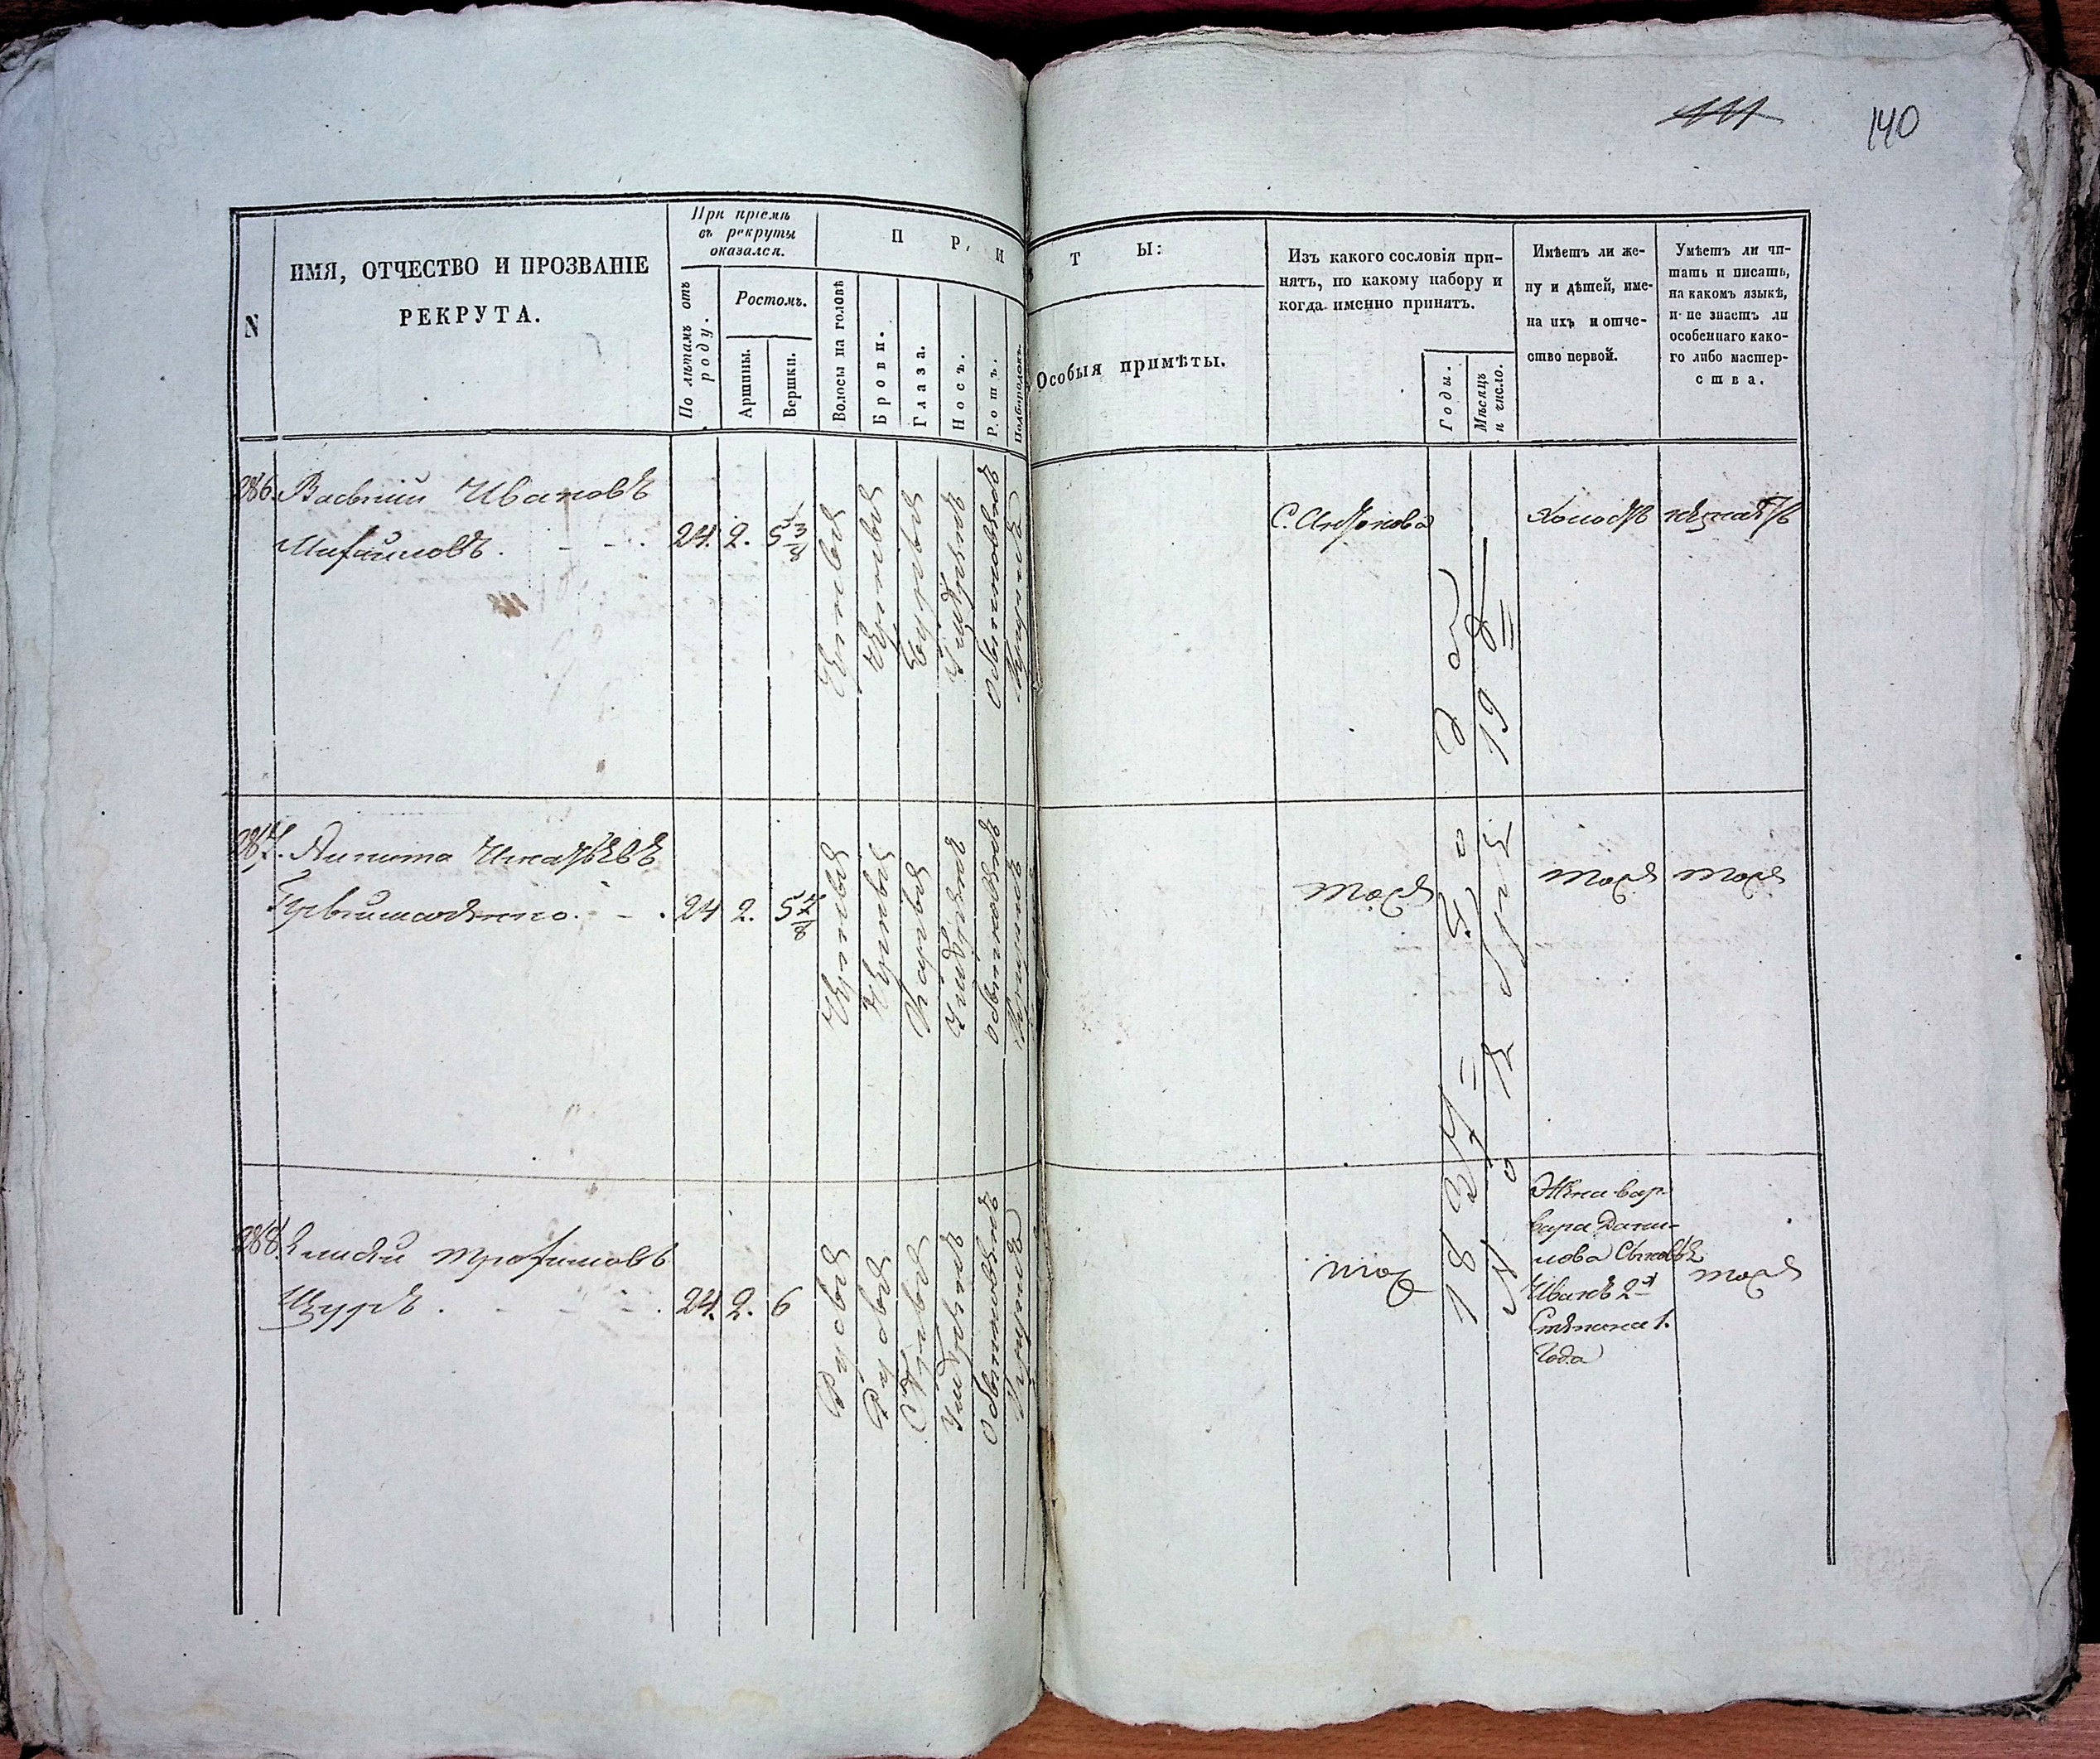 140
N
ИМЯ, ОТЧЕСТВО И ПРОЗВАНІЕ
РЕКРУТА.
При пріемѣ
въ рекруты
оказался.
По лѣтамъ отъ
роду.
Ростомъ.
Аршины.
Вершки.
П Р И
Волосы на головѣ
Брови.
Глаза.
Носъ.
Ротъ.
Подбородокъ.
Т Ы:
Особыя примѣты.
Изъ какого сословія при-
нятъ, по какому набору и
когда именно принятъ.
Годы.
Мѣсяцъ
и число.
Имѣетъ ли же-
ну и дѣтей, име-
на ихъ и отче-
ство первой.
Умѣетъ ли чи-
тать и писать,
на какомъ языкѣ,
и не знаетъ ли
особеннаго како-
го либо мастер-
ства.
286. Василій Ивановъ
Михайловъ. 24. 2. 5 3/8
Русыя
Обыкновенный
С. Антонова
Холостъ
287. Никита Игнатьевъ
24 2. 5 7/8
Черныя
Черныя
Каріе
Умѣренный
Обыкновенный
Круглый
тоже
тоже
тоже
288. Елисей Трофимовъ
24. 2. 6
Русыя
Русыя
Сѣрые
Умѣренный
Обыкновенный
Круглый
тож
Жена Вар-
вара Дани-
лова Сыновья
Иванъ 2х
Степана 1.
года
тоже
1837
года
19